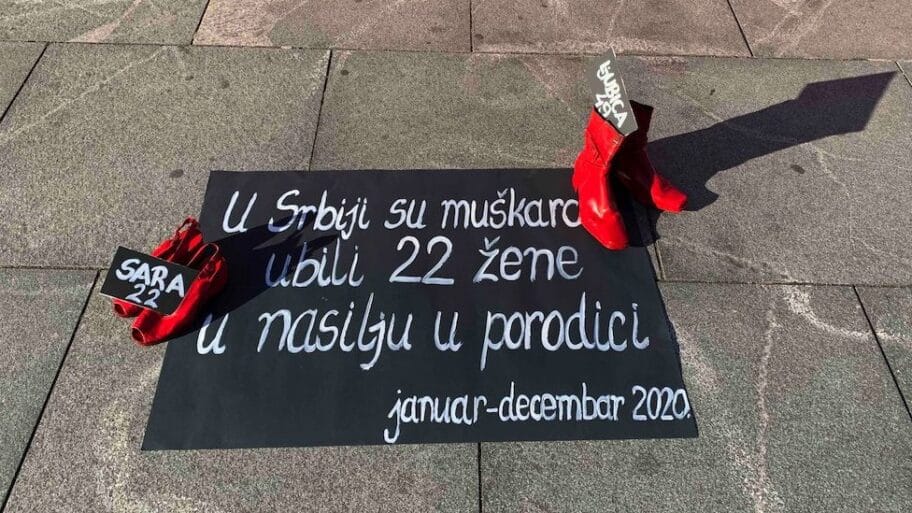 LJUBICA
49
U Srbiji su
ubili 22 žene
u nasilju u porodici
januar-decembar 2020.
SARA
22